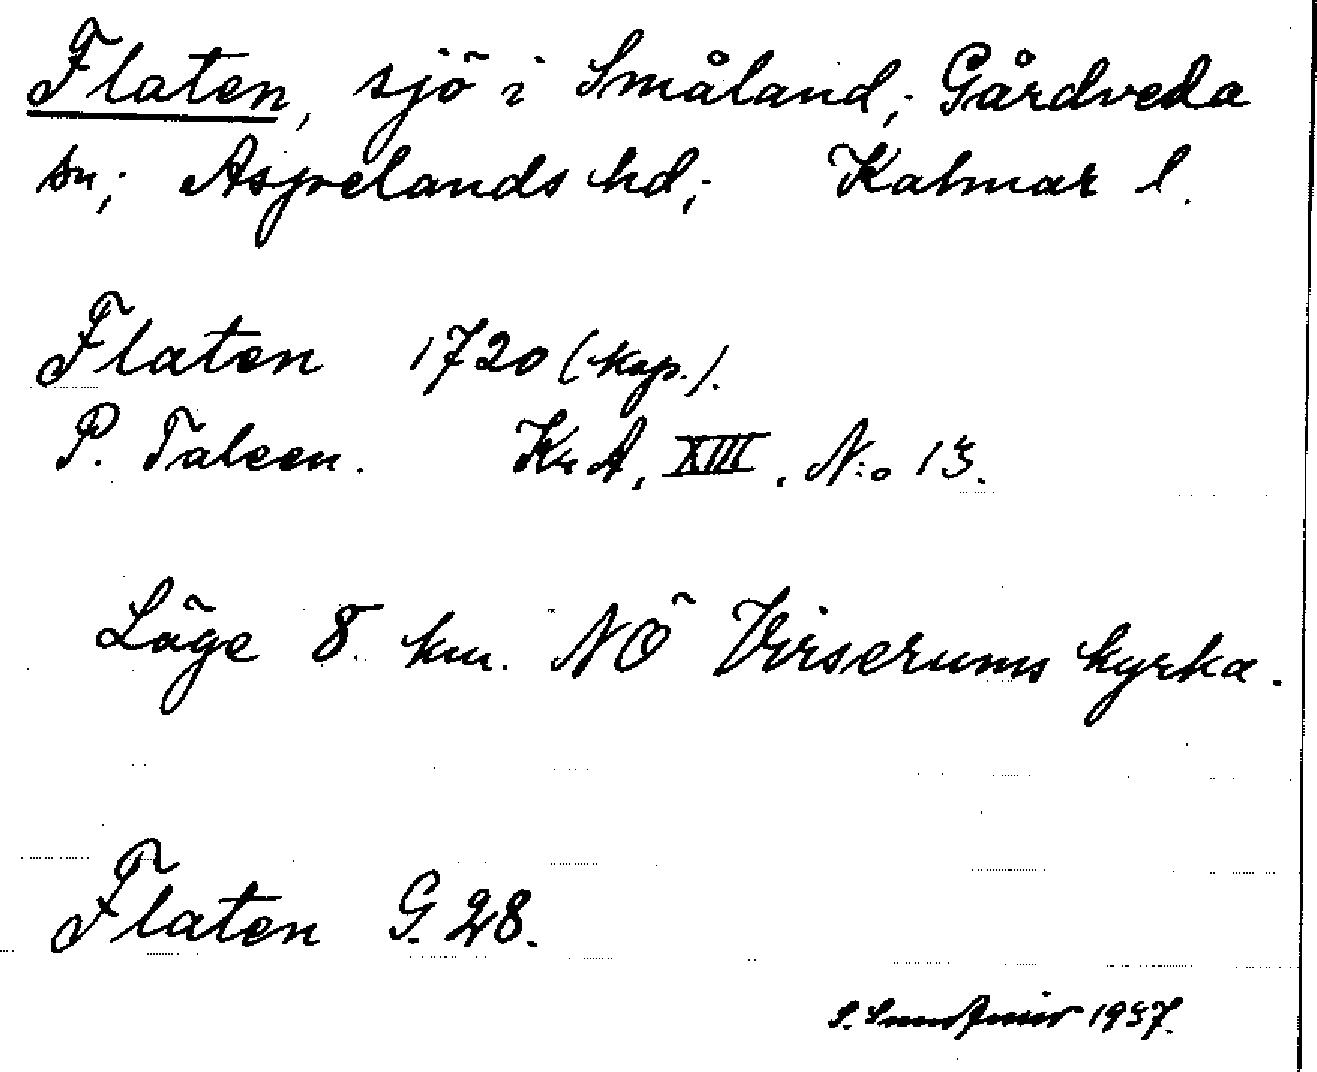 Flaten, sjö i Småland; Gårdveda
sn; Aspelands hd; Kalmar l.
Flaten 1720 (kop.).
P. Taleen. KrA, XIII. N:o 13.
Läge 8 km. NÖ Virserums kyrka.
Flaten G. 28.
S. 1937.